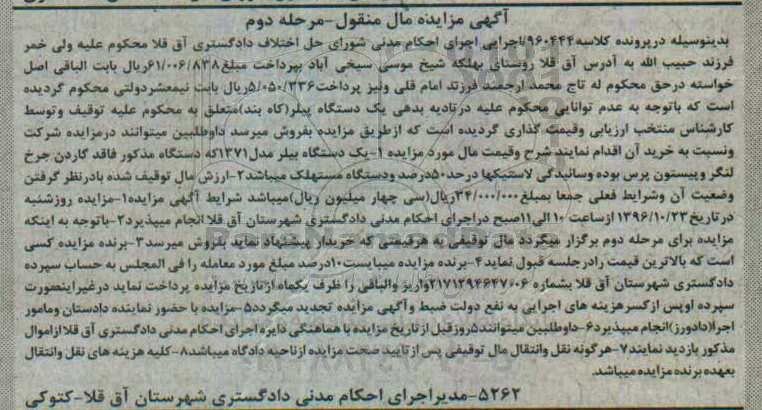 آگهی مزایده مال منقول-مرحله دوم
بدینوسیله درپرونده کلاسه۹۶۰۴۴۴/اجرایی اجرای احکام مدنی شورای حل اختلاف دادگستری آق قلا محکوم علیه ولی خمر
فرزند حبیب الله به آدرس آق قلا روستای بهلکه شیخ موسی سیخی آباد بپرداخت مبلغ۶۱/۰۰۶/۸۳۸ریال بابت الباقی اصل
خواسته درحق محکوم له تاج محمد ارجمند فرزند امام قلی ونیز پرداخت۵/۰۵۰/۳۳۶ریال بابت نیمعشردولتی محکوم گردیده
است که باتوجه به عدم توانایی محکوم علیه درتادیه بدهی یک دستگاه بیلر(کاه بند)متعلق به محکوم علیه توقیف وتوسط
کارشناس منتخب ارزیابی وقیمت گذاری گردیده است که ازطریق مزایده بفروش میرسد داوطلبین میتوانند درمزایده شرکت
ونسبت به خرید آن اقدام نمایند شرح وقیمت مال مورد مزایده ۱-یک دستگاه بیلر مدل۱۳۷۱که دستگاه مذکور فاقد گاردن چرخ
لنگر وپیستون پرس بوده وسائیدگی لاستیکها درحد۵۰درصد ودستگاه مستهلک میباشد۲-ارزش مال توقیف شده بادرنظر گرفتن
وضعیت آن وشرایط فعلی جمعا بمبلغ۳۴/۰۰۰/۰۰۰ریال(سی چهار میلیون ریال)میباشد شرایط آگهی مزایده۱-مزایده روزشنبه
درتاریخ۱۳۹۶/۱۰/۲۳ازساعت ۱۰الی۱۱صبح دراجرای احکام مدنی دادگستری شهرستان آق قلا انجام میپذیرد۲-باتوجه به اینکه
مزایده برای مرحله دوم برگزار میگردد مال توقیفی به هرقیمتی که خریدار پیشنهاد نماید بفروش میرسد۳-برنده مزایده کسی
است که بالاترین قیمت رادرجلسه قبول نماید۴-برنده مزایده میبایست۱۰درصد مبلغ مورد معامله را فی المجلس به حساب سپرده
دادگستری شهرستان آق قلا بشماره ۲۱۷۱۲۹۴۶۴۷۰۰۶واریز والباقی را ظرف یکماه ازتاریخ مزایده پرداخت نماید درغیراینصورت
سپرده اوپس ازکسرهزینه های اجرایی به نفع دولت ضبط وآگهی مزایده تجدید میگردد۵-مزایده با حضور نماینده دادستان ومامور
اجرا(دادورز)انجام میپذیرد۶-داوطلبین میتوانند۵روزقبل ازتاریخ مزایده با هماهنگی دایره اجرای احکام مدنی دادگستری آق قلا ازاموال
مذکور بازدید نمایند۷-هرگونه نقل وانتقال مال توقیفی پس ازتایید صحت مزایده ازناحیه دادگاه میباشد۸-کلیه هزینه های نقل وانتقال
بعهده برنده مزایده میباشد.
۵۲۶۲-مدیراجرای احکام مدنی دادگستری شهرستان آق قلا-کتوکی